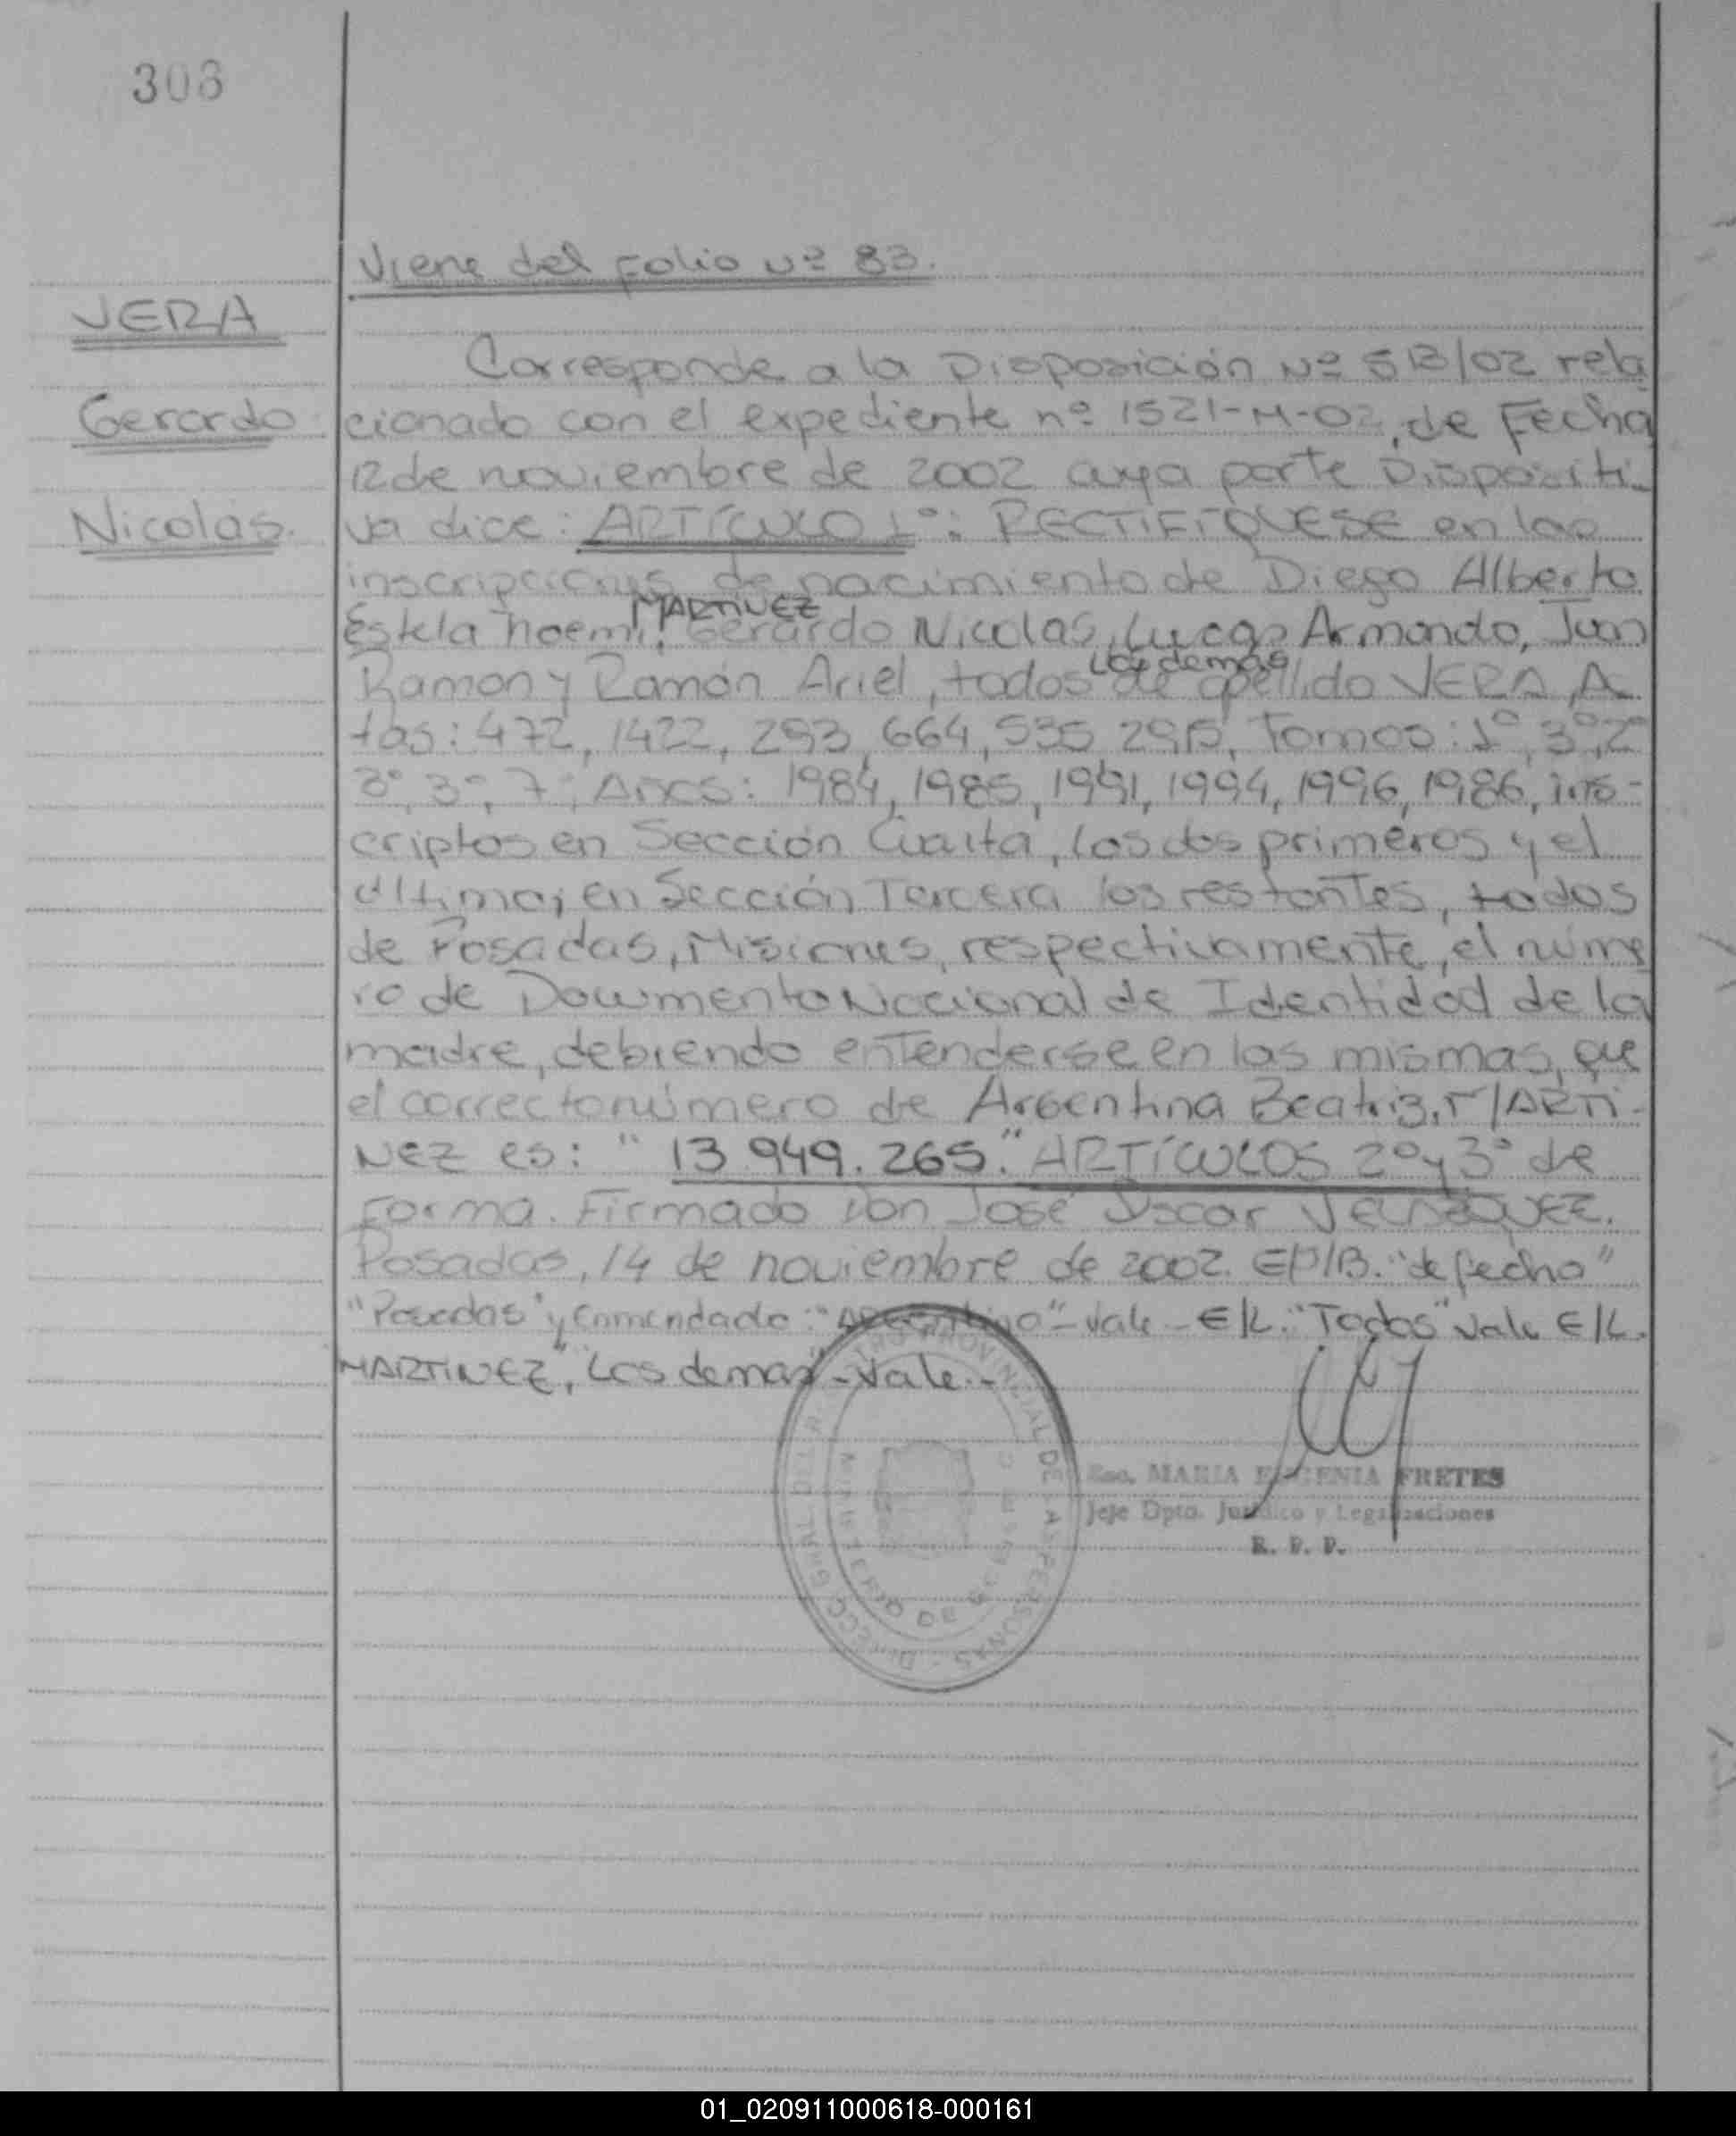 308
Viene del folio nº 83.
VERA
Gerardo
Nicolás.
Corresponde a la Disposición Nº 513/02 rela
cionado con el expediente nº 1521-M-02, de Fecha
12 de noviembre de 2002 cuya parte Dispositi-
va dice: ARTÍCULO 1º: RECTIFIQUESE en las
inscripciones de nacimiento de Diego Alberto
Estela Noemi, MARTINEZ Gerardo Nicolas, Lucas Armando, Juan
Ramon y Ramón Ariel, todos los demás de apellido VERA, Ac
tas: 472, 1422, 293, 664, 535, Tomos: 1º, 3º, 2º
3º, 3º, 7º, Años: 1984, 1985, 1991, 1994, 1996, 1986, ins-
criptos en Sección Cuarta, los dos primeros y el
último; en Sección Tercera los restantes, todos
de Posadas, Misiones, respectivamente, el núme
ro de Documento Nacional de Identidad de la
madre, debiendo entenderse en las mismas, que
el correcto número de Argentina Beatriz, MARTI-
NEZ es: "13.949.265." ARTÍCULOS 2º y 3º de
Forma. Firmado Don José Oscar VELAZQUEZ.
Posadas, 14 de noviembre de 2002. "de fecha"
"Posadas" y enmendado: "Argentina" - Vale - E/L. "Todos" Vale E/L.
MARTINEZ, "Los demas" - Vale.-
Esc. MARIA EUGENIA FRETES
Jefe Dpto. Jurídico y Legalizaciones
R. P. P.
PROVINCIAL DE LAS PERSONAS
MINISTERIO DE
01_020911000618-000161